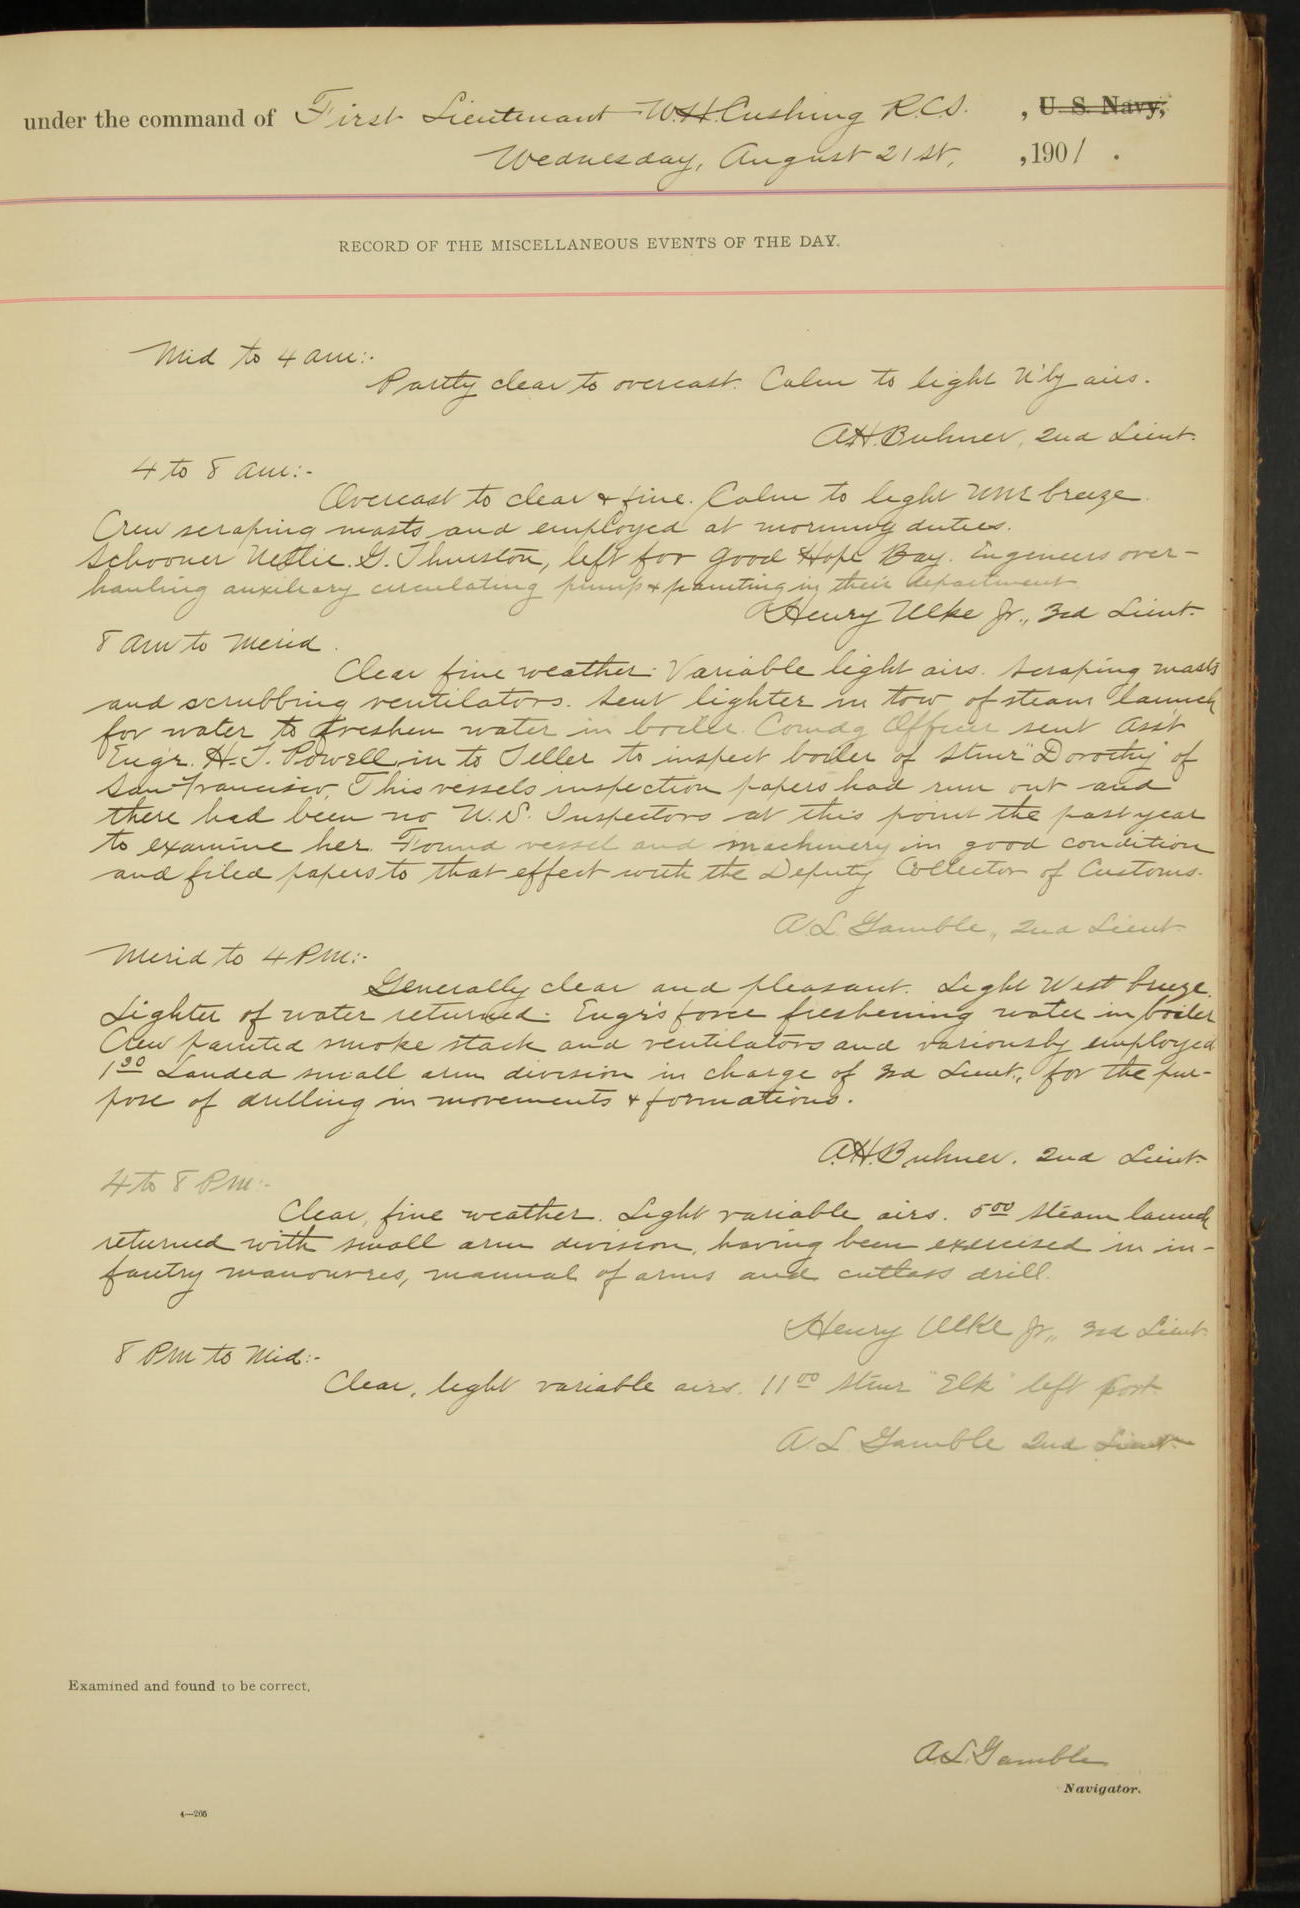 under the command of First Lieutenant W.H. Cushing R.C.S. , U. S. Navy,
Wednesday, August 21st, , 1901 .
RECORD OF THE MISCELLANEOUS EVENTS OF THE DAY.
Mid to 4 am:-
Partly clear to overcast. Calm to light N'ly airs.
A.H. Buhner, 2nd Lieut.
4 to 8 am:-
Overcast to clear & fine. Calm to light NNE breeze.
Crew scraping masts and employed at morning duties.
Schooner Nettie. G. Thurston, left for Good Hope Bay. Engineers over-
hauling auxiliary circulating pump & painting in their department
Henry Ulke Jr., 3rd Lieut.
8 am to Merid.
Clear fine weather. Variable light airs. Scraping masts
and scrubbing ventilators. Sent lighter in tow of steam launch
for water to freshen water in boiler. Comdg Officer sent Asst
Engr. H. T. Powell in to Teller to inspect boiler of Stmr "Dorothy" of
San Francisco. This vessels inspection papers had run out and
there had been no U.S. Inspectors at this point the past year
to examine her. Found vessel and machinery in good condition
and filed papers to that effect with the Deputy Collector of Customs.
A. L. Gamble, 2nd Lieut.
Merid to 4 PM:-
Generally clear and pleasant. Light West breeze.
Lighter of water returned. Engr's force freshening water in boiler
Crew painted smoke stack and ventilators and variously employed
1 30 Landed small arm division in charge of 3rd Lieut., for the pur-
pose of drilling in movements & formations.
A.H. Buhner. 2nd Lieut.
4 to 8 PM:-
Clear, fine weather. Light variable airs. 5 00 steam launch
returned with small arm division, having been exercised in in-
fantry manouvres, manual of arms and cutlass drill.
Henry Ulke Jr., 3rd Lieut
8 PM to Mid:-
Clear, light variable airs. 11 00 Stmr "Elk" left port.
A. L. Gamble 2nd Lieut.
Examined and found to be correct.
A. L. Gamble
Navigator.
4—205